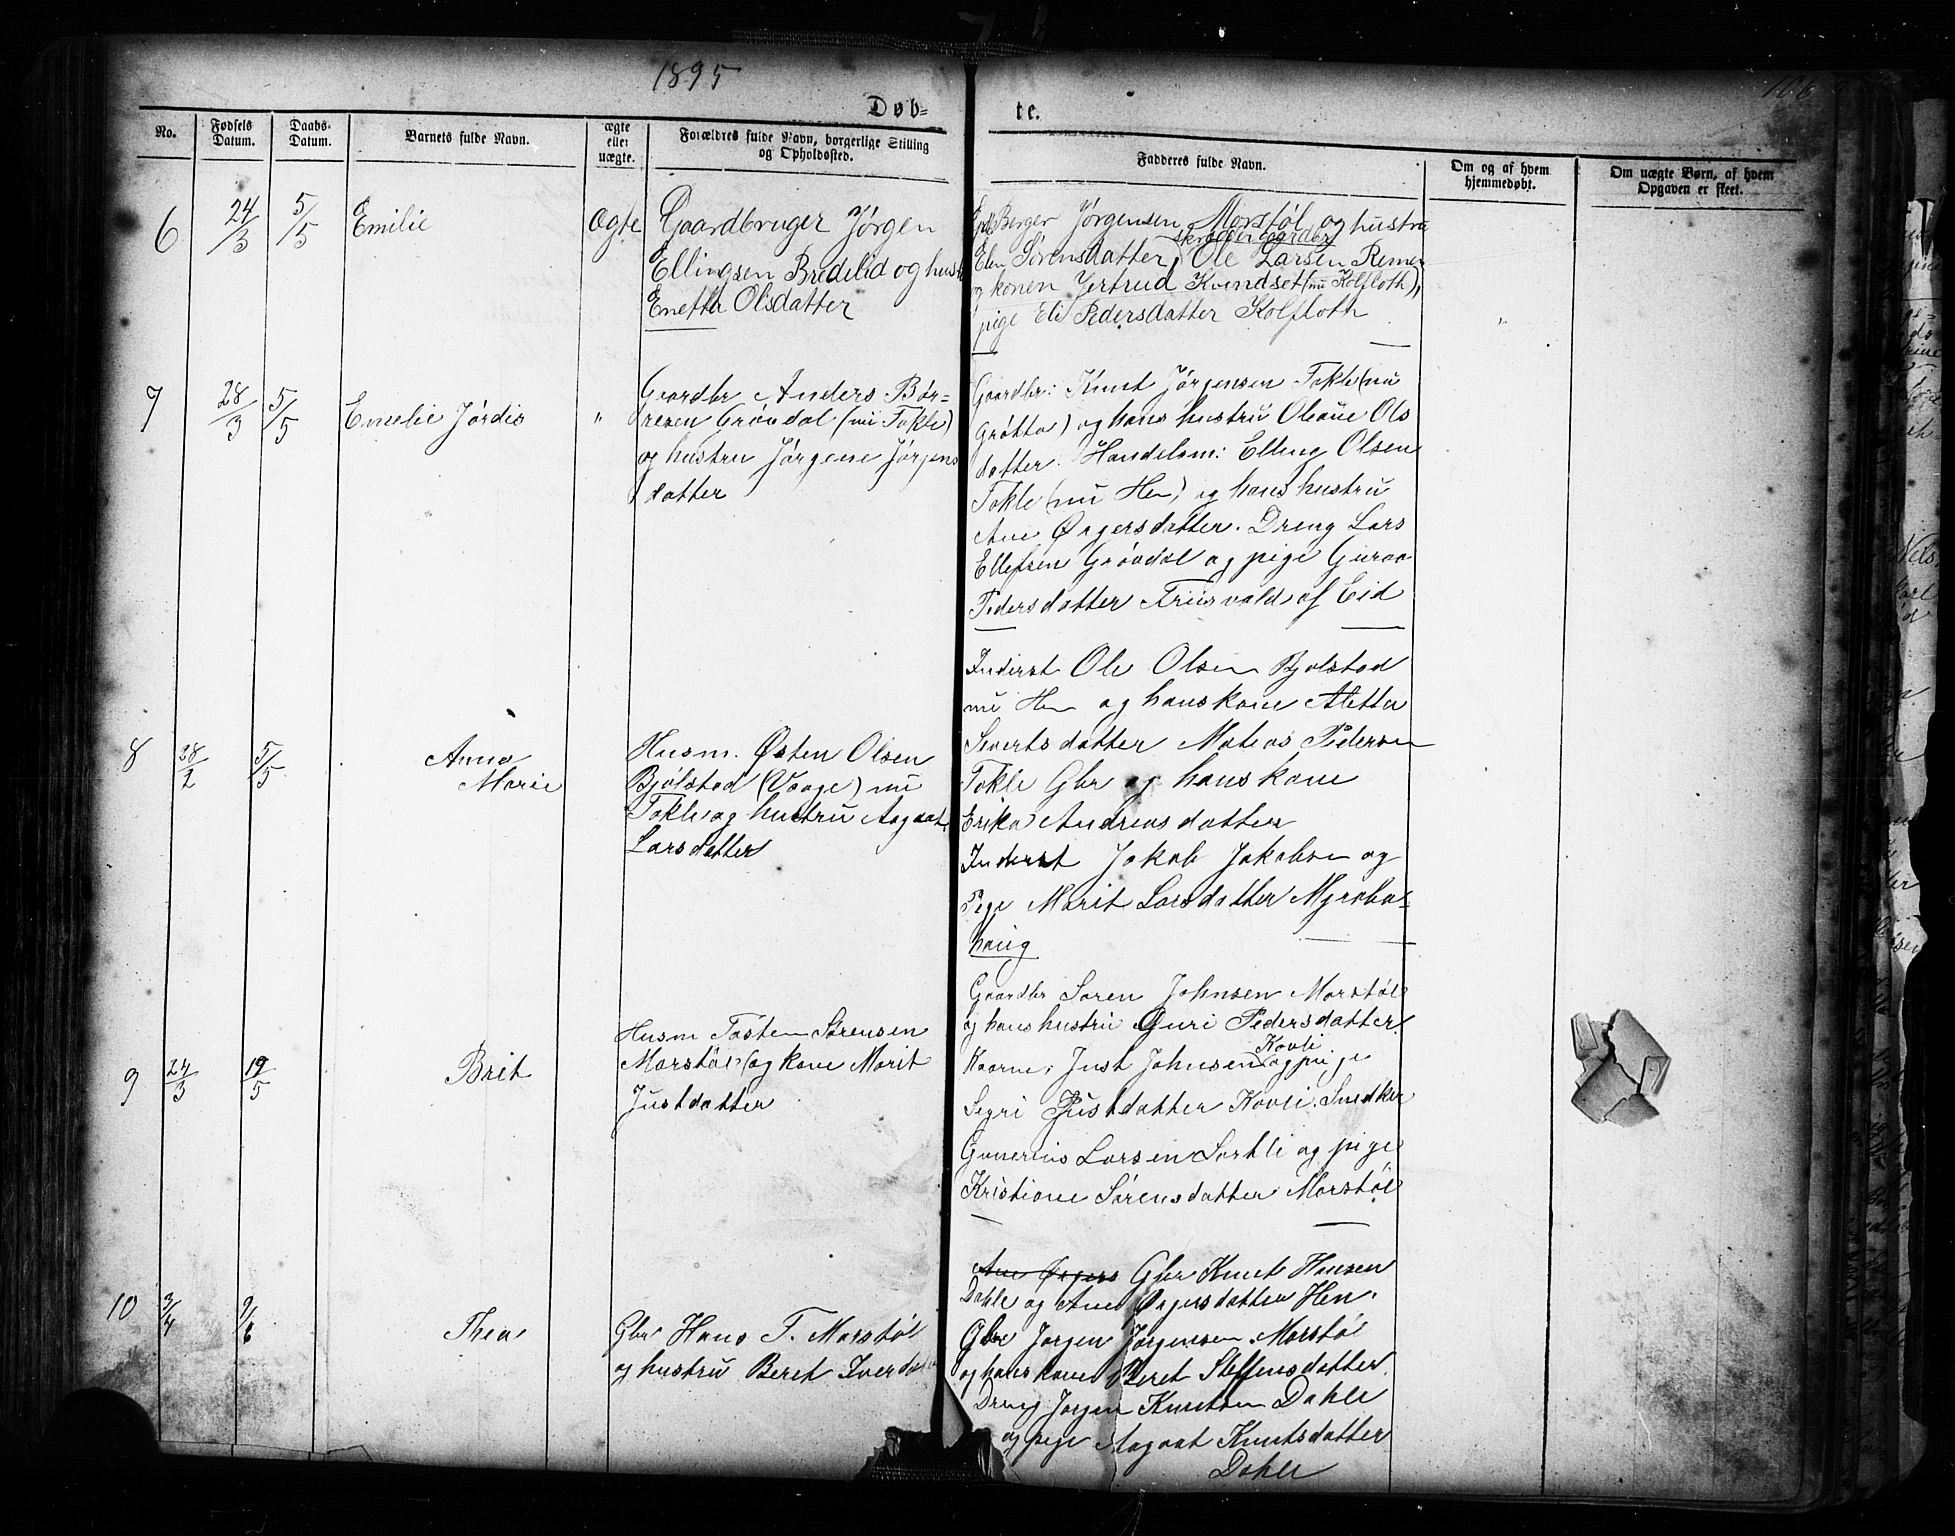 1895
106
Døb=
te.
No.
Fødsels
Datum.
Daabs-
Datum.
Barnets fulde Navn.
ægte
eller
uægte.
Forældres fulde Navn, borgerlige Stilling
og Opholdssted.
Fadderes fulde Navn.
Om og af hvem
hjemmedøbt.
Om uægte Børn, af hvem
Opgaven er skeet.
6
24/3
5/5
Emilie
Ægte
Gaardbruger Jørgen
Ellingsen Bredelid og hustr
Enetta Olsdatter
Berger Jørgensen Morstøl og hustru
Elen Sørensdatter, Ole Larsen Remen
og konen Gertrud Kvindset (nu Kolfloth),
pige Eli Pedersdatter Kolfloth
7
28/3
5/5
Emelie Jørdis
"
Gaardbr Anders Bør-
resen Grøvdal (nu Tokle)
og hustru Jørgene Jørgens
datter
Gaardbr: Knut Jørgensen Tokle (nu
Grøtta) og hans hustru Oleane Ols
datter. Handelsm: Elling Olsen
Tokle (nu Hen) og hans hustru
Ane Ørgersdatter. Dreng Lars
Ellefsen Grøvdal og pige Guroa
Pedersdatter Friisvald af Eid
8
28/2
5/5
Anna
Marie
Husm. Østen Olsen
Bjølstad (Vaage) nu
Tokle og hustru Aagaat
Larsdatter
Inderst Ole Olsen Bjolstad
nu Hen og hans kone Aletta
Sivertsdatter Mateas Pedersen
Tokle Gbr og hans kone
Erika Andreasdatter
Inderst Jakob Jakobsen og
Pige Marit Larsdatter Myrebø-
haug
9
24/3
19/5
Brit
Husm Tosten Sørensen
Morstøl og kone Marit
Justdatter
Gaardbr Søren Johnsen Morstøl
og hans hustru Guri Pedersdatter.
Kovli
Kaarm. Just Johnsen og pige
Segri Justdatter Kovli. Snedker
Gunerius Larsen Sortli og pige
Kristiane Sørensdatter Morstøl
10
3/4
9/6
Thea
Gbr Hans T. Morstøl
og hustru Beret Iverdat
Ane Ørgers Gbr Knut Hansen
Dahle og Ane Ørgersdatter Hen.
Gbr Jørgen Jørgensen Morstøl
og hans kone Beret Steffensdatter
Dreng Jørgen Knutsen Dahle
og pige Aagaat Knutsdatter
Dahle